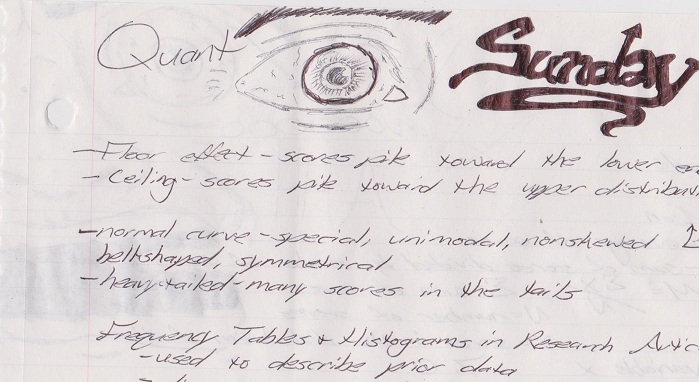 Quant
Sunday
- Floor effect - scores pile toward the lower
- Ceiling - scores pile toward the upper
- normal curve - special, unimodal, nonskewed
bellshaped, symmetrical
- heavy-tailed - many scores in the tails
Frequency Tables & Histograms in Research
- used to describe prior data